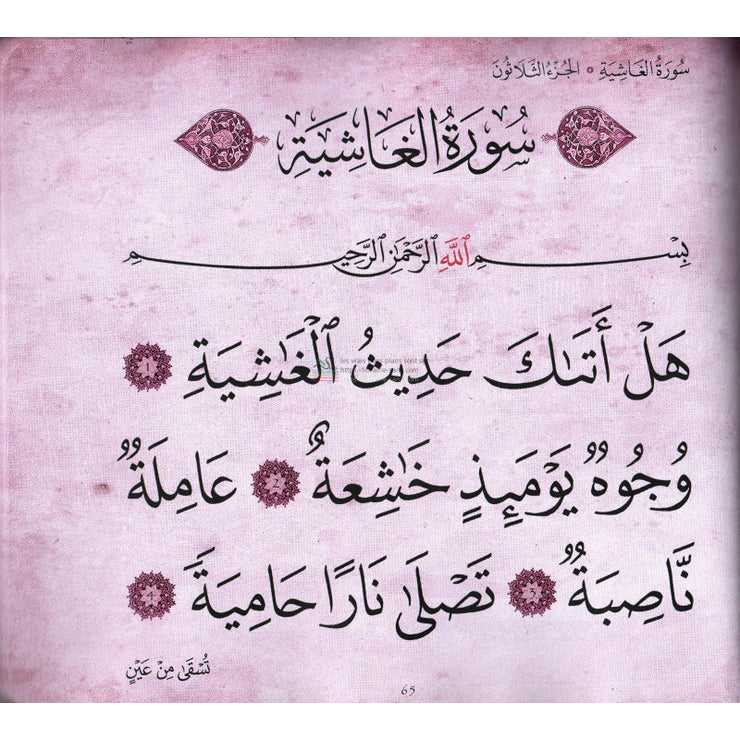 سُورَةُ الغَاشِيَةِ • الجُزْءُ الثَّلَاثُونَ
سُورَةُ الغَاشِيَةِ
بِسْمِ ٱللَّهِ ٱلرَّحْمَٰنِ ٱلرَّحِيمِ
هَلْ أَتَىٰكَ حَدِيثُ ٱلْغَٰشِيَةِ 1
وُجُوهٌ يَوْمَئِذٍ خَٰشِعَةٌ 2 عَامِلَةٌ
نَّاصِبَةٌ 3 تَصْلَىٰ نَارًا حَامِيَةً 4
تُسْقَىٰ مِنْ عَيْنٍ
65
les vrais plans sont sur